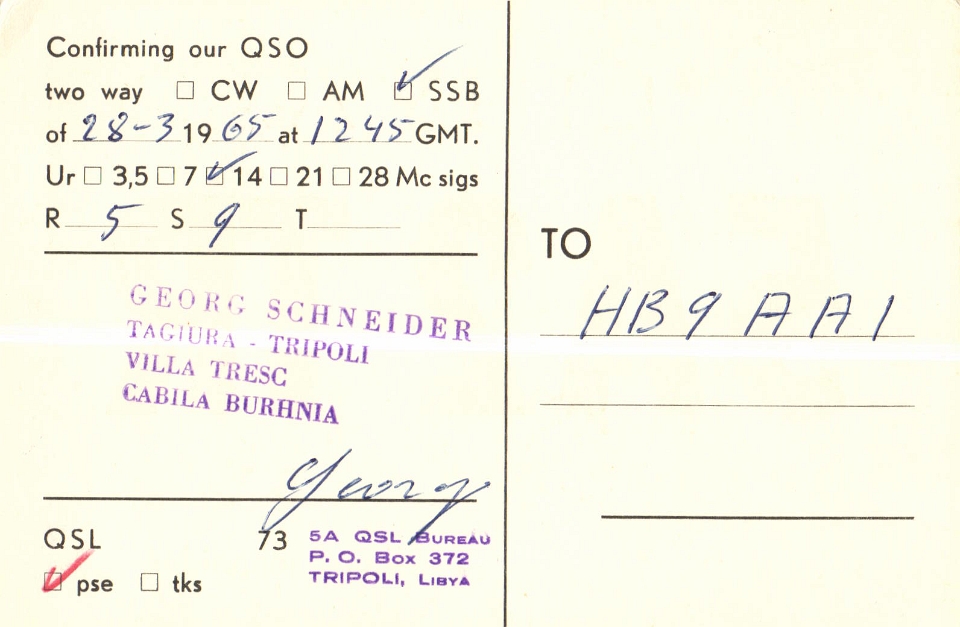 Confirming our QSO
two way ☐ CW ☐ AM ☑ SSB
of 28-3 1965 at 1245 GMT.
Ur ☐ 3,5 ☐ 7 ☑ 14 ☐ 21 ☐ 28 Mc sigs
R 5 S 9 T
GEORG SCHNEIDER
TAGIURA - TRIPOLI
VILLA TRESC
CABILA BURHNIA
Georg
QSL 73
☑ pse ☐ tks
5A QSL BUREAU
P. O. Box 372
TRIPOLI, LIBYA
TO
HB9AAI